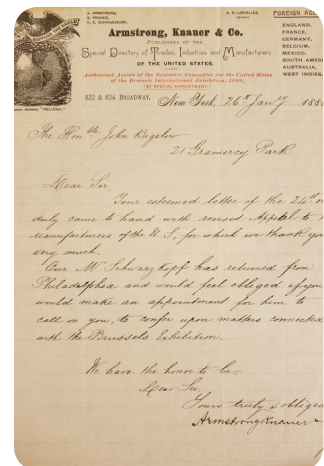 J. ARMSTRONG,
E. KNAUER,
A. S. LASCELLES,
FOREIGN AGE
Armstrong, Knauer & Co.
PUBLISHERS OF THE
Special Directory of Trades, Industries and Manufacturers
OF THE UNITED STATES,
Authorized Agents of the Executive Committee for the United States
of the Brussels International Exhibition, 1888,
BY SPECIAL APPOINTMENT.
ENGLAND,
FRANCE,
GERMANY,
BELGIUM,
MEXICO,
SOUTH AMERI
AUSTRALIA,
WEST INDIES,
822 & 824 BROADWAY,
New York, 26th Jany 188
The Honble John Bigelow
21 Gramercy Park
Dear Sir,
Your esteemed letter of the 24th
duly came to hand with revised Appeal to
manufacturers of the U S, for which we thank you
very much.
Our Mr Schwarzkopf has returned from
Philadelphia and would feel obliged if you
would make an appointment for him to
call on you, to confer upon matters connected
with the Brussels Exhibition.
We have the honor to be,
Dear Sir,
Yours truly & obliged
Armstrong Knauer